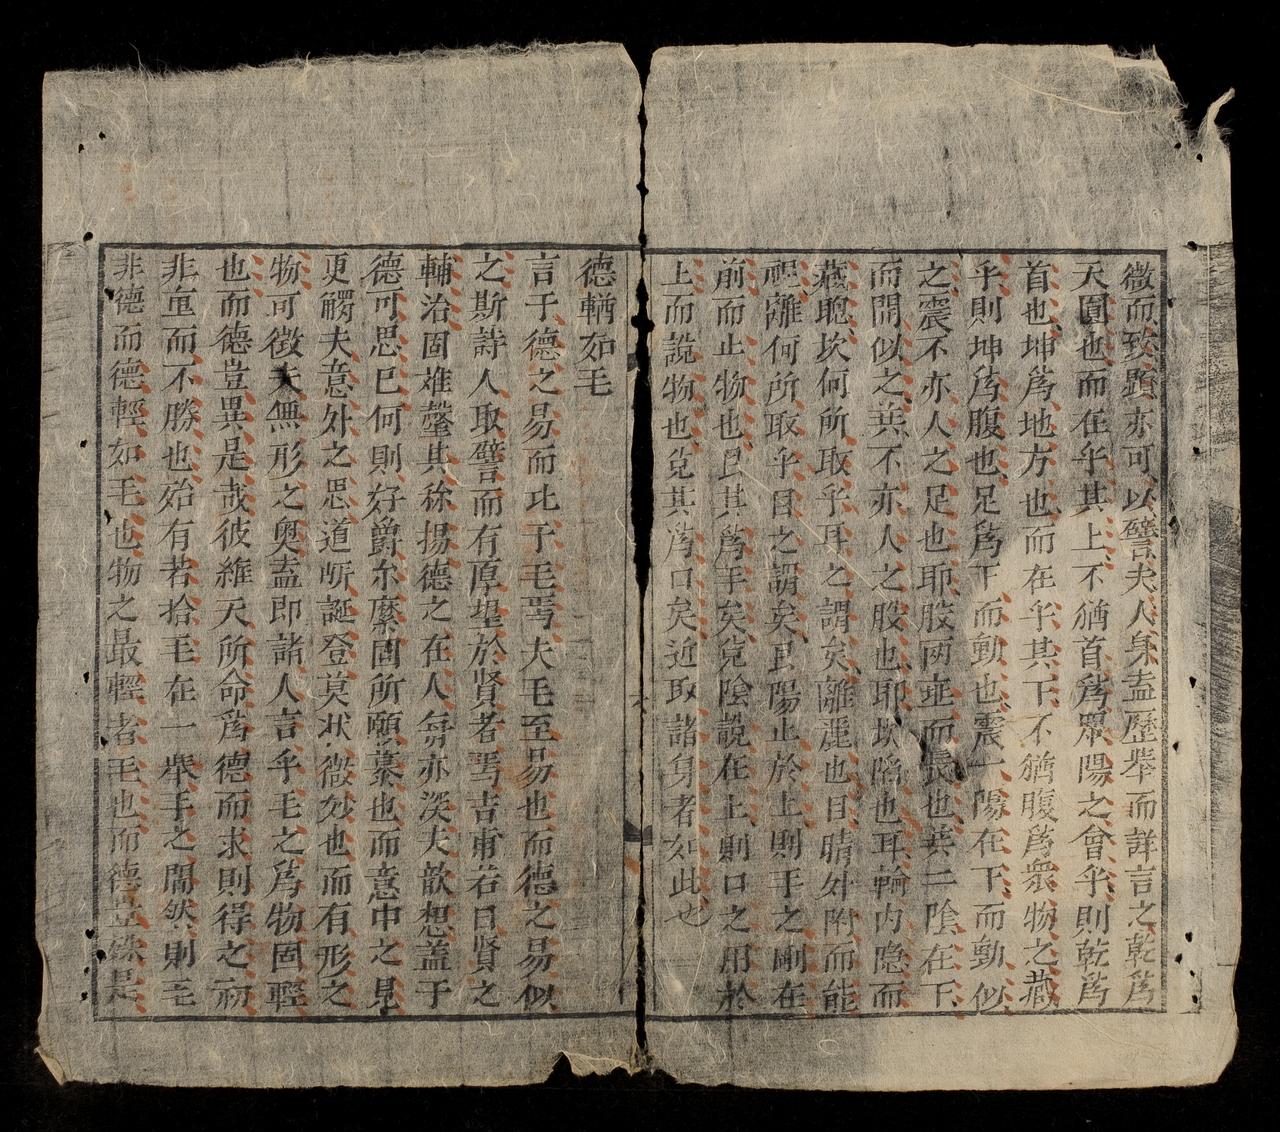 微而致顕亦可以譬夫人身盍歷举而詳言之乾爲
天圓也而在乎其上不猶首爲眾陽之會乎則乾爲
首也坤爲地方也而在乎其下不猶腹爲衆物之藏
乎則坤爲腹也足爲下而動也震一陽在下而動似
之震不亦人之足也耶股兩垂而長也其二陰在下
而開似之其不亦人之股也耶坎陷也耳輪内隐而
藏聰坎何所取乎耳之謂矣離麗也目睛外附而能
視離何所取乎目之謂矣艮陽止於上則手之剛在
前而止物也艮其爲手矣兌陰說在上則口之用於
上而說物也兌其爲口矣近取諸身者如此也
德輶如毛
言于德之易而比于毛焉夫毛至易也而德之易似
之斯詩人取譬而有厚望於賢者焉吉甫若曰賢之
輔治固难罄其徐揚德之在人身亦深夫歆想盖于
德可思巳何則好爵尔縻固所願慕也而意中之見
更觸夫意外之思道岍誕登莫状微妙也而有形之
物可徴夫無形之奥盍即諸人言乎毛之爲物固輕
也而德豈異是哉彼維天所命爲德而求則得之初
非重而不勝也始有若拾毛在一举手之間然則毛
非德而德輕如毛也物之最輕者毛也而德豈殊是